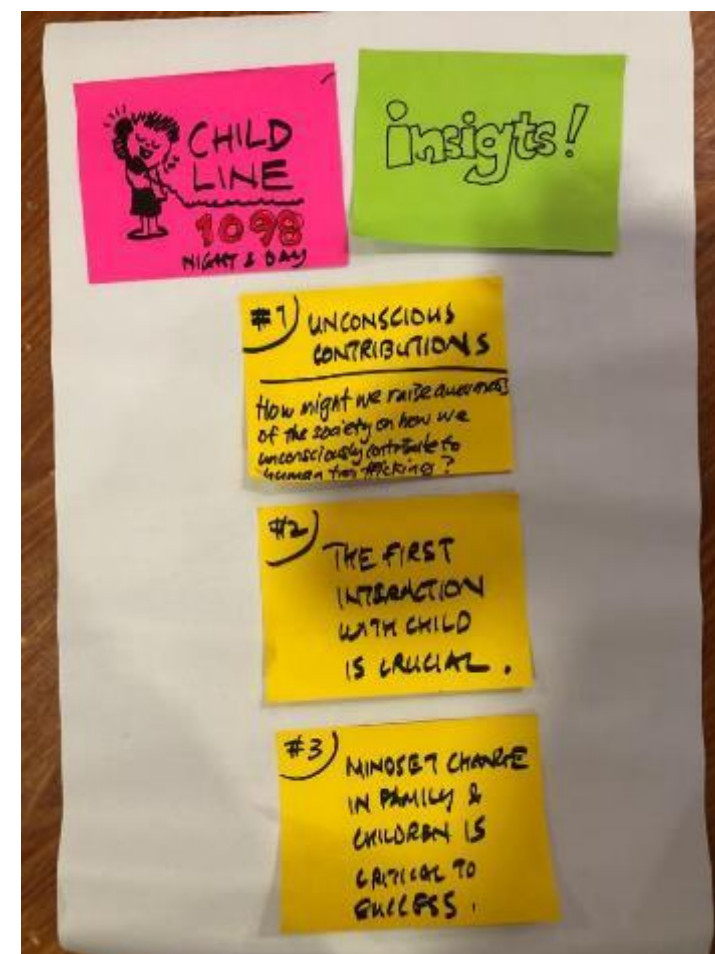 CHILD
LINE
1098
NIGHT & DAY
insigts!
#1) UNCONSCIOUS
CONTRIBUTIONS
How might we raise awareness
of the society on how we
unconsciously contribute to
human trafficking?
#2)
THE FIRST
INTERACTION
WITH CHILD
IS CRUCIAL.
#3)
MINDSET CHANGE
IN FAMILY &
CHILDREN IS
CRITICAL TO
SUCCESS.